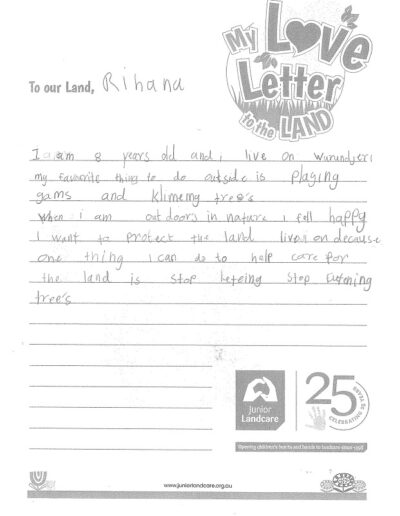 My Love Letter to the LAND
To our Land, Rihana
I am 8 years old and i live on Wurundjeri
my favourite thing to do outside is Playing
gams and klimemg tree's
When i am outdoors in nature i fell happy
I want to Protect the land live on because
one thing i can do to help care for
the land is stop leteing stop cutming
tree's
Junior Landcare
25
CELEBRATING 25 YEARS
Opening children's hearts and hands to landcare since 1998
www.juniorlandcare.org.au